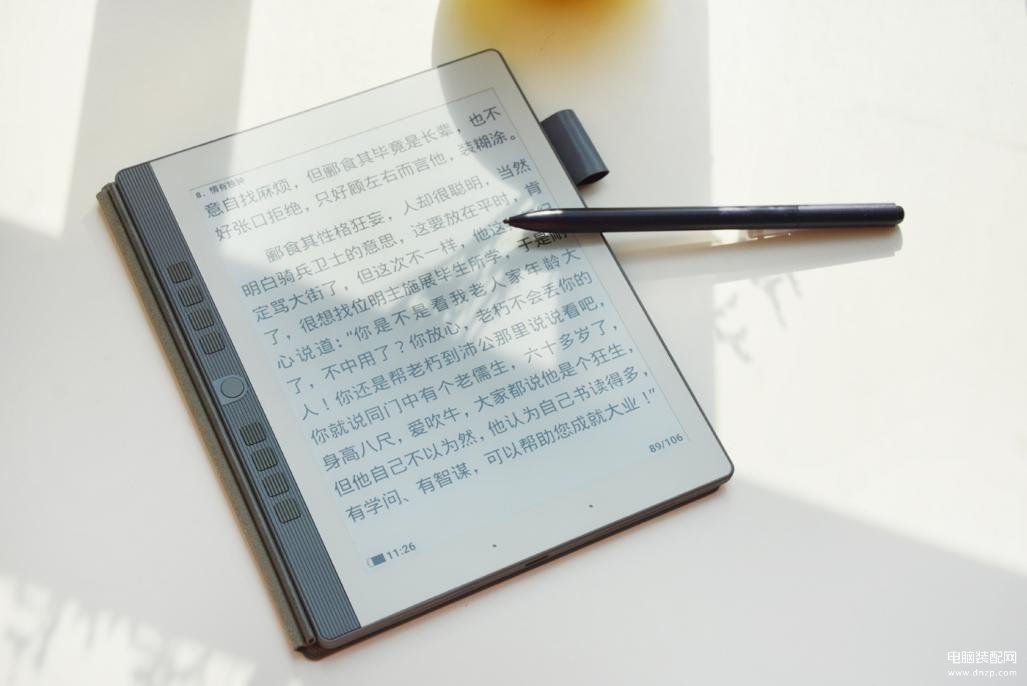 8、情有独钟
意自找麻烦，但郦食其毕竟是长辈，也不
好张口拒绝，只好顾左右而言他，装糊涂。
郦食其性格狂妄，人却很聪明，当然
明白骑兵卫士的意思，这要放在平时，肯
定骂大街了，但这次不一样，他这
了，很想找位明主施展毕生所学，于是耐
心说道：“你是不是看我老人家年龄大
了，不中用了？你放心，老朽不会丢你的
人！你还是帮老朽到沛公那里说说看吧，
你就说同门中有个老儒生，六十多岁了，
身高八尺，爱吹牛，大家都说他是个狂生，
但他自己不以为然，他认为自己书读得多，
有学问、有智谋，可以帮助您成就大业！”
89/106
11:26
电脑装配网
www.dnzp.com